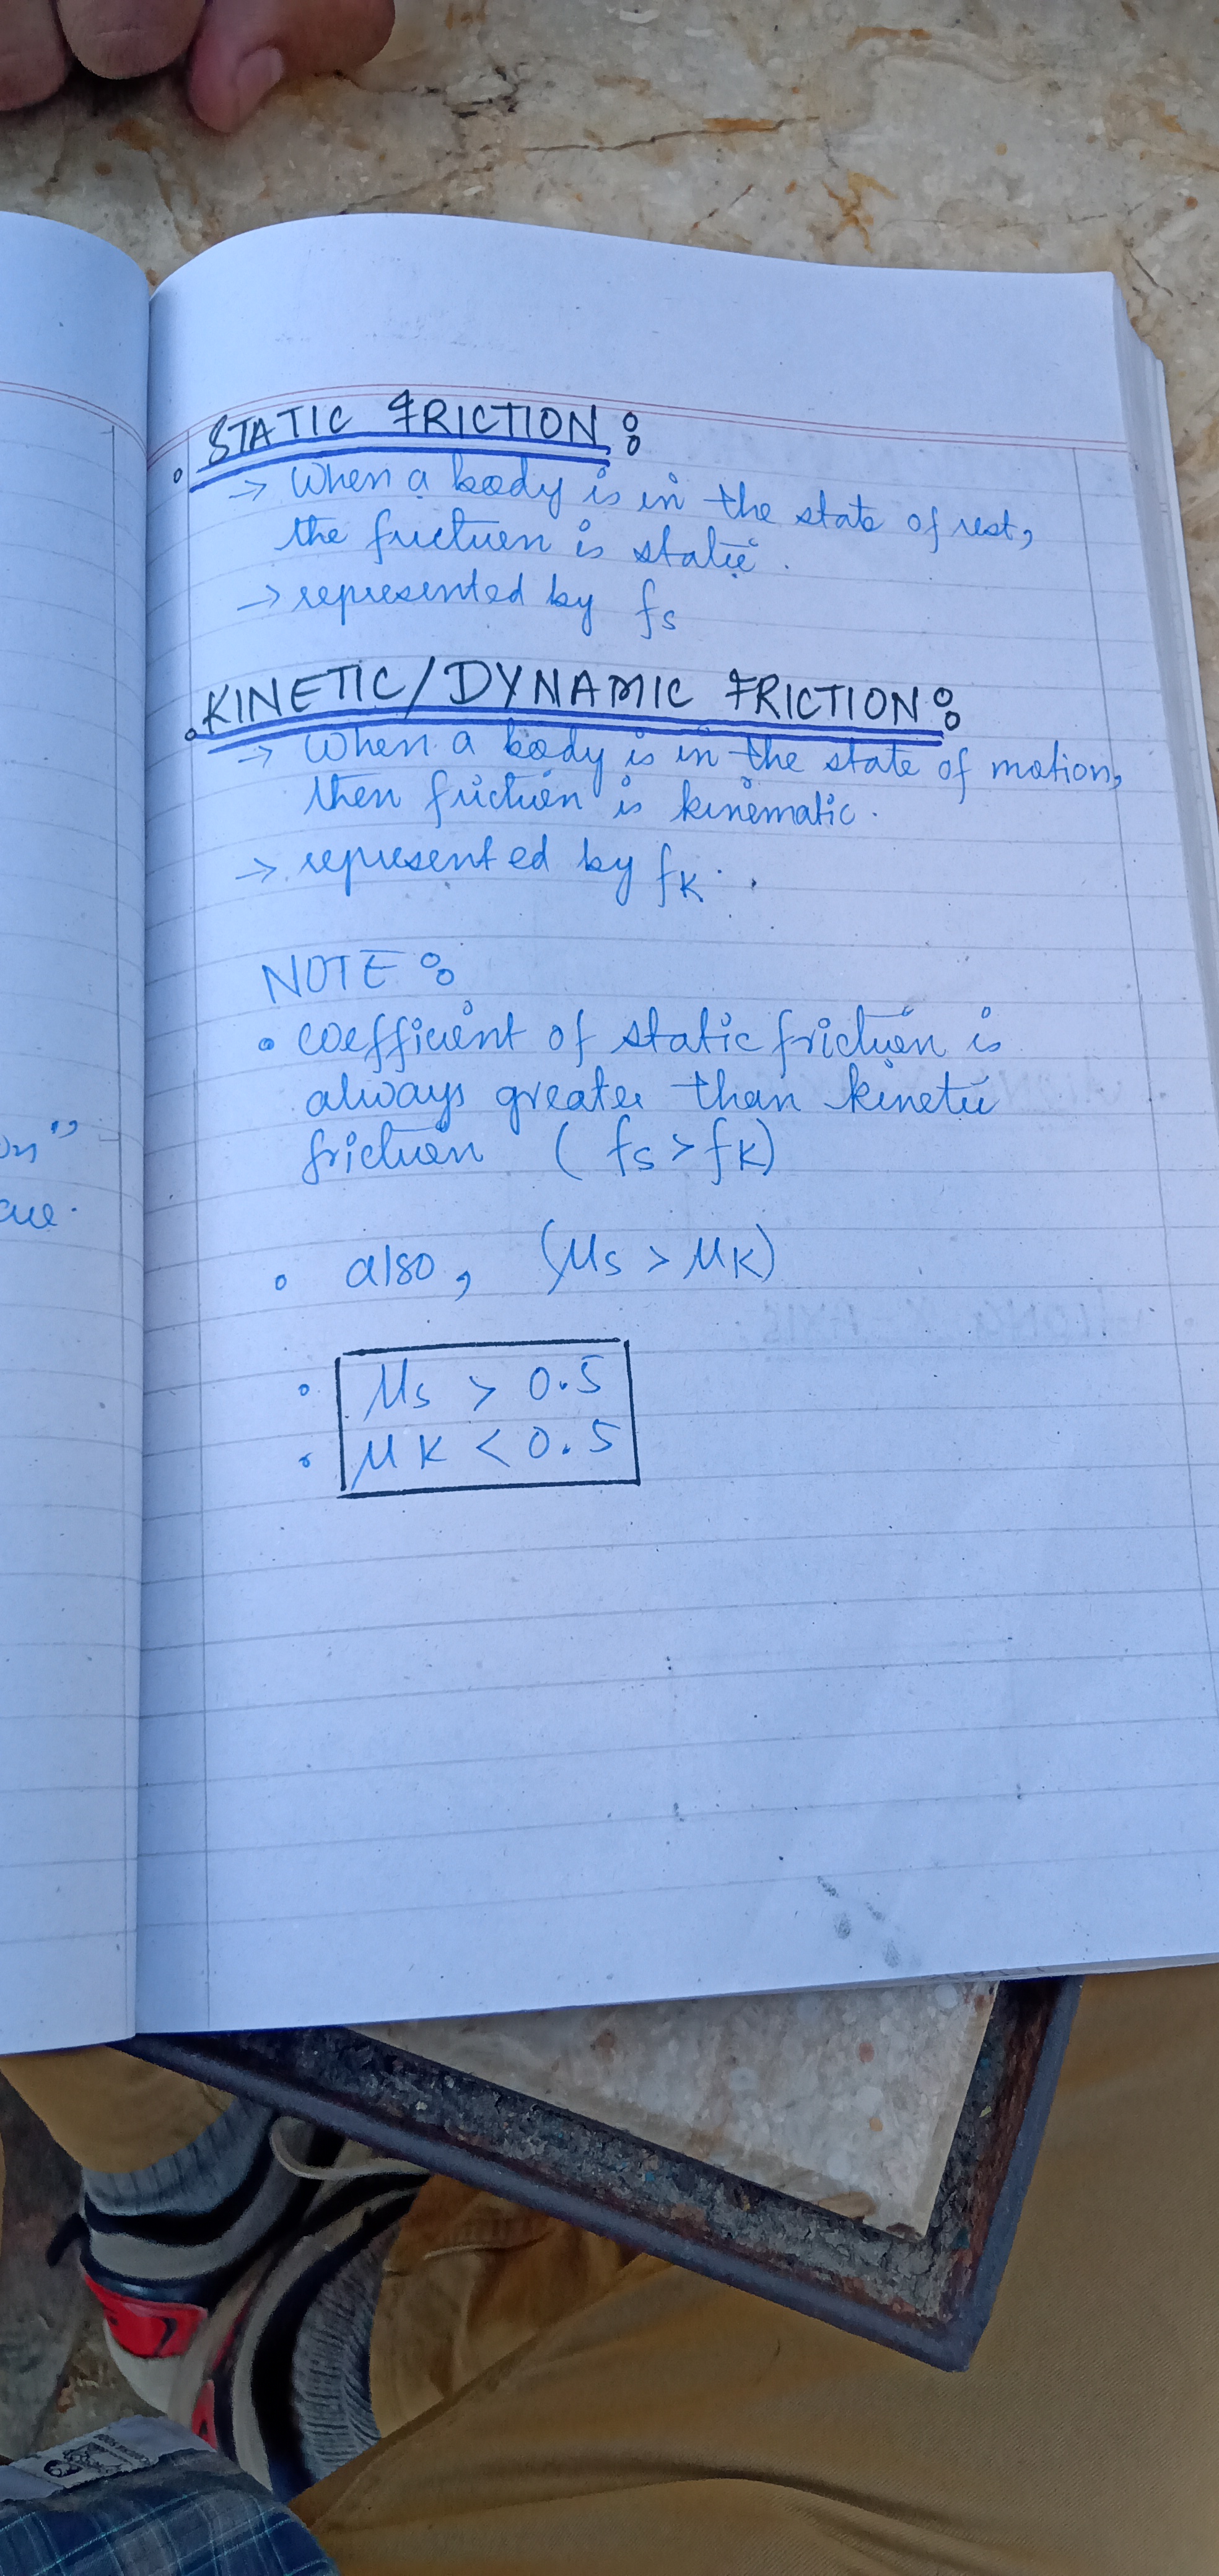 STATIC FRICTION:
→ When a body is in the state of rest,
the friction is static.
→ represented by fs
KINETIC/DYNAMIC FRICTION:
→ When a body is in the state of motion,
then friction is kinematic.
→ represented by fK.
NOTE:
• coefficient of static friction is
always greater than kinetic
friction (fs > fK)
• also, (μs > μK)
• μs > 0.5
• μK < 0.5